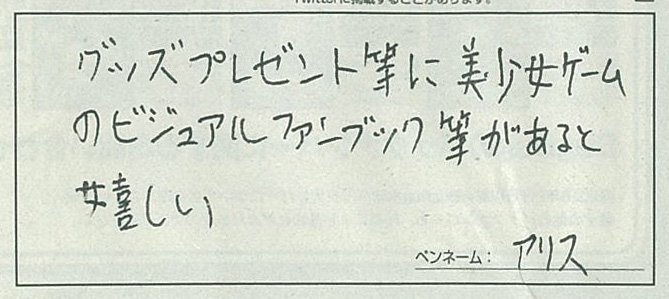 Twitterに掲載することがあります。
グッズプレゼント等に美少女ゲーム
のビジュアルファンブック等があると
嬉しい
ペンネーム： アリス